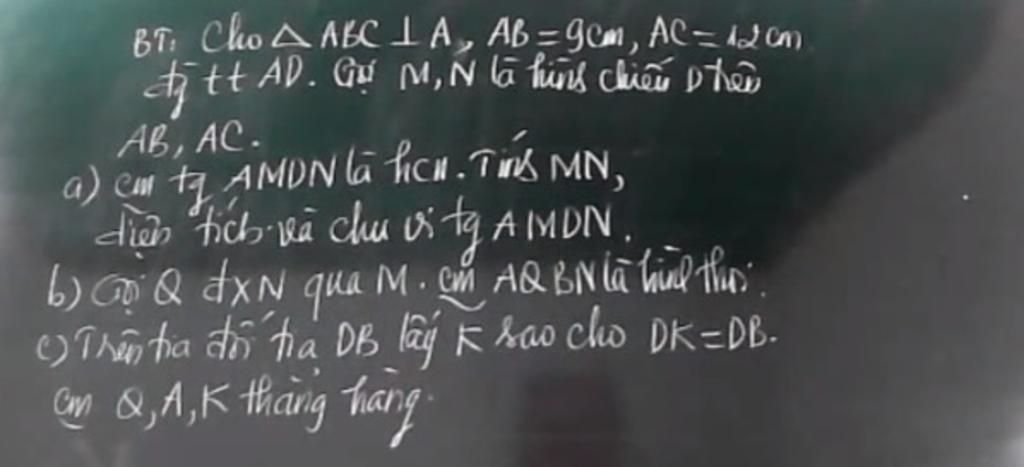 BT: Cho △ ABC ⊥ A, AB = 9cm, AC = 12cm
đg tt AD. Gọi M, N là hình chiếu D trên
AB, AC.
a) cm tg AMDN là hcn. Tính MN,
diện tích và chu vi tg AMDN.
b) Gọi Q đx N qua M. cm AQBN là hình thoi.
c) Trên tia đối tia DB lấy K sao cho DK = DB.
cm Q, A, K thẳng hàng.